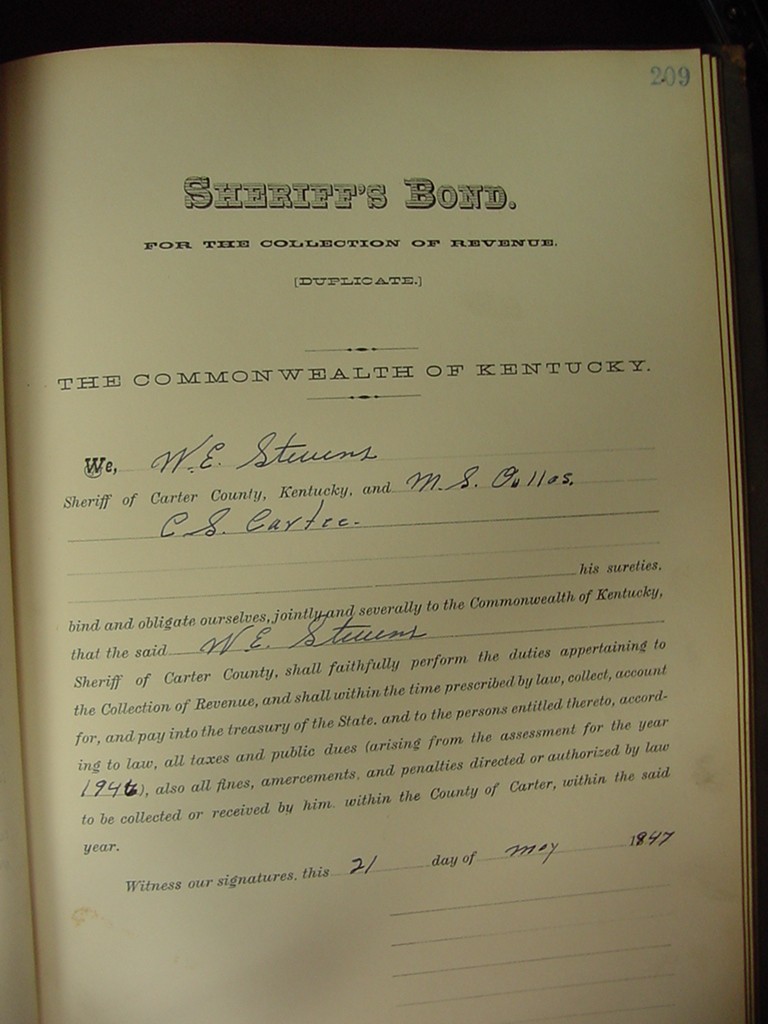 209
SHERIFF'S BOND.
FOR THE COLLECTION OF REVENUE.
[DUPLICATE.]
THE COMMONWEALTH OF KENTUCKY.
We, W. E. Stevens
Sheriff of Carter County, Kentucky, and M. S.
C. S. Cartee.
his sureties,
bind and obligate ourselves, jointly and severally to the Commonwealth of Kentucky,
that the said W E. Stevens
Sheriff of Carter County, shall faithfully perform the duties appertaining to
the Collection of Revenue, and shall within the time prescribed by law, collect, account
for, and pay into the treasury of the State, and to the persons entitled thereto, accord-
ing to law, all taxes and public dues (arising from the assessment for the year
1946), also all fines, amercements, and penalties directed or authorized by law
to be collected or received by him. within the County of Carter, within the said
year.
Witness our signatures, this 21 day of may 1847